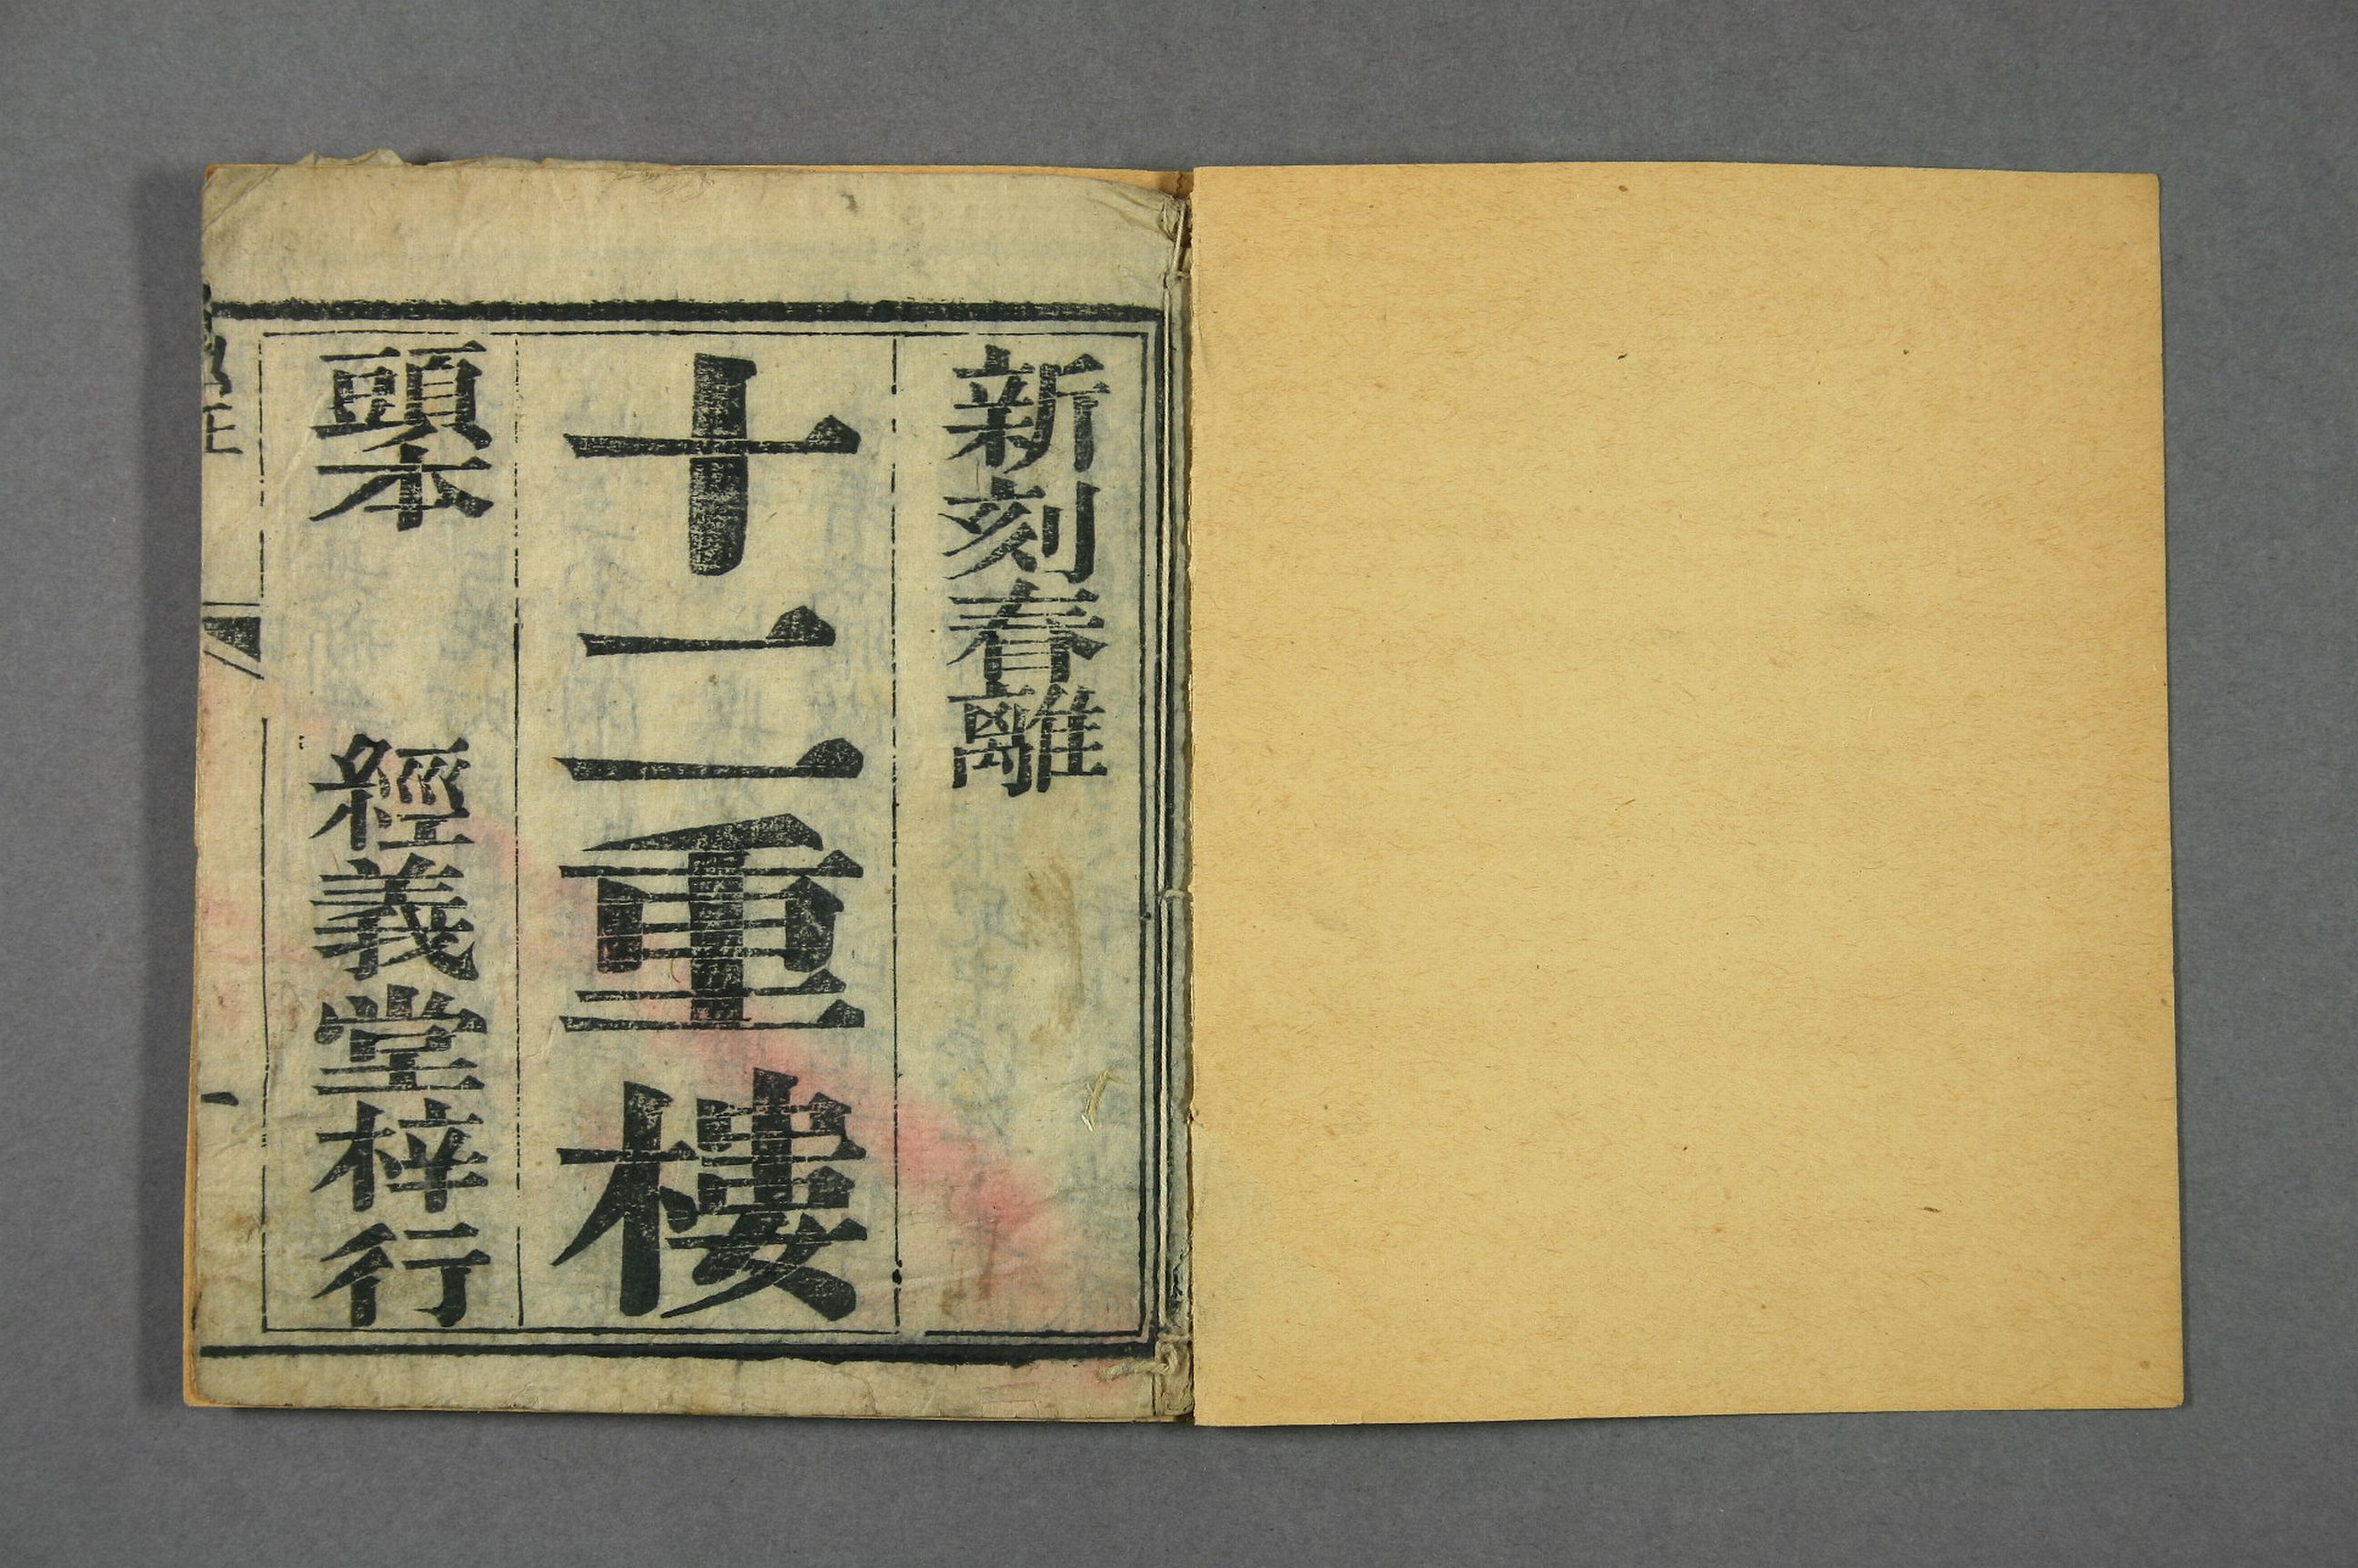 新刻春離
十二重樓
頭本 經義堂梓行